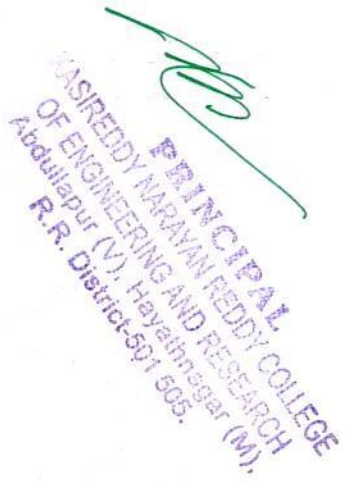 PRINCIPAL
KASIREDDY NARAYAN REDDY COLLEGE
OF ENGINEERING AND RESEARCH
Abdullapur (V), Hayathnagar (M),
R.R. District-501 505.